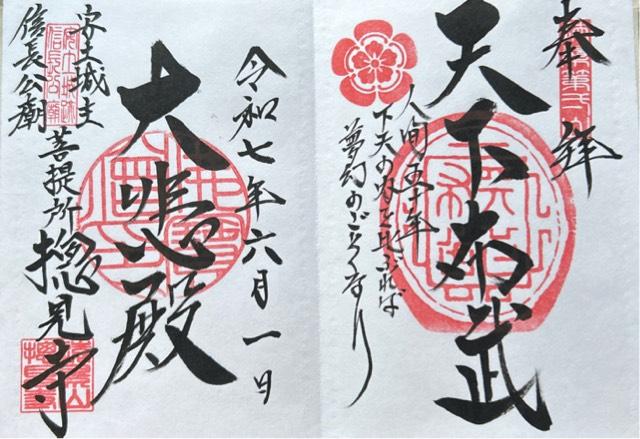 奉拝
天下布武
人間五十年
下天の内を比ぶれば
夢幻のごとくなり
令和七年六月一日
大悲殿
安土城主
信長公廟
菩提所
摠見寺